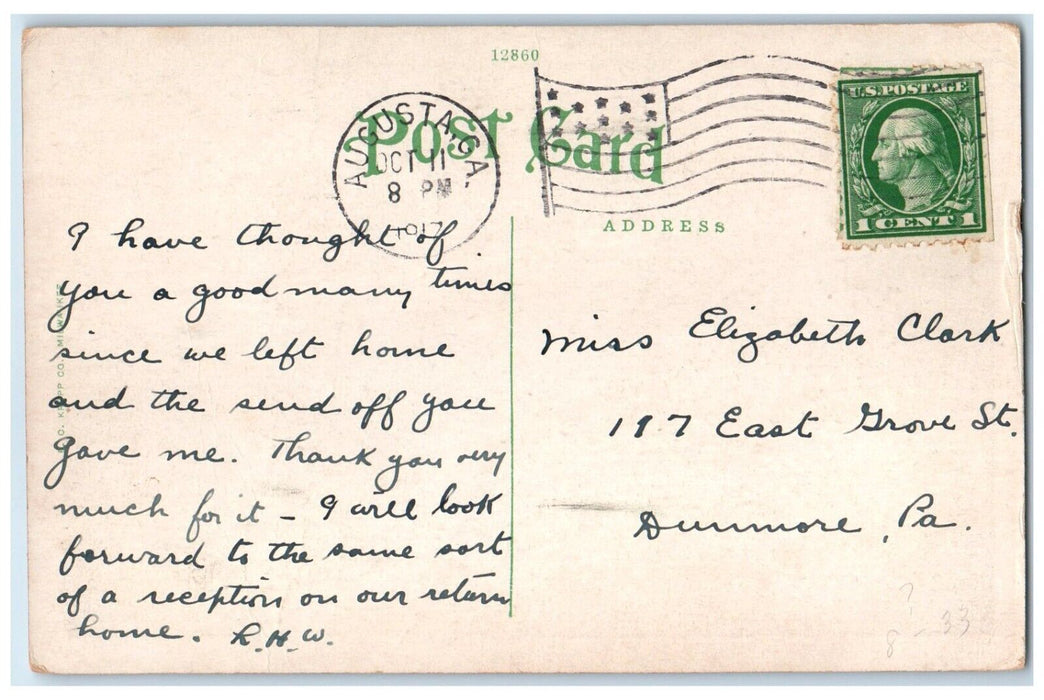 12860
Post Card
AUGUSTA, GA.
OCT 11
8 PM
1917
U.S. POSTAGE
1 CENT 1
ADDRESS
I have thought of
you a good many times
since we left home
and the send off you
gave me. Thank you very
much for it – I will look
forward to the same sort
of a reception on our return
home. R.H.W.
Miss Elizabeth Clark
117 East Grove St.
Dunmore, Pa.
CO., MILWAUKEE
? 33
8